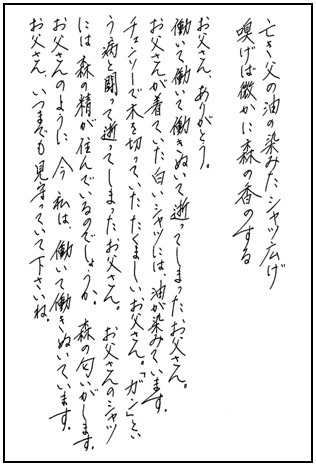 亡き父の油の染みたシャツ広げ
嗅げば微かに森の香のする
お父さん、ありがとう。
働いて働いて働きぬいて逝ってしまった、お父さん。
お父さんが着ていた白いシャツには、油が染みています。
チェンソーで木を切っていたたくましいお父さん。「ガン」とい
う病と闘って逝ってしまったお父さん。 お父さんのシャツ
には森の精が住んでいるのでしょうか。 森の匂いがします。
お父さんのように、今、私は、働いて働きぬいています。
お父さん、いつまでも見守っていて下さいね。